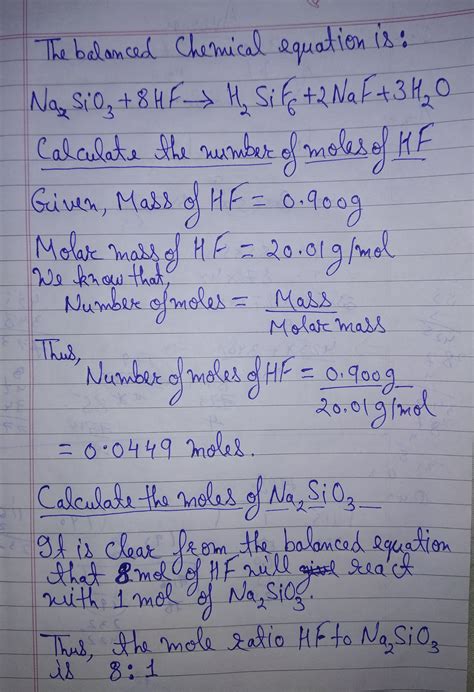 The balanced Chemical equation is:
Na₂SiO₃+8HF→H₂SiF₆+2NaF+3H₂O
Calculate the number of moles of HF
Given, Mass of HF = 0.900g
Molar mass of HF = 20.01g/mol
We know that,
Number of moles = Mass
Molar mass
Thus,
Number of moles of HF = 0.900g
20.01g/mol
= 0.0449 moles.
Calculate the moles of Na₂SiO₃
It is clear from the balanced equation
that 8mol of HF will react
with 1mol of Na₂SiO₃.
Thus, the mole ratio HF to Na₂SiO₃
is 8:1